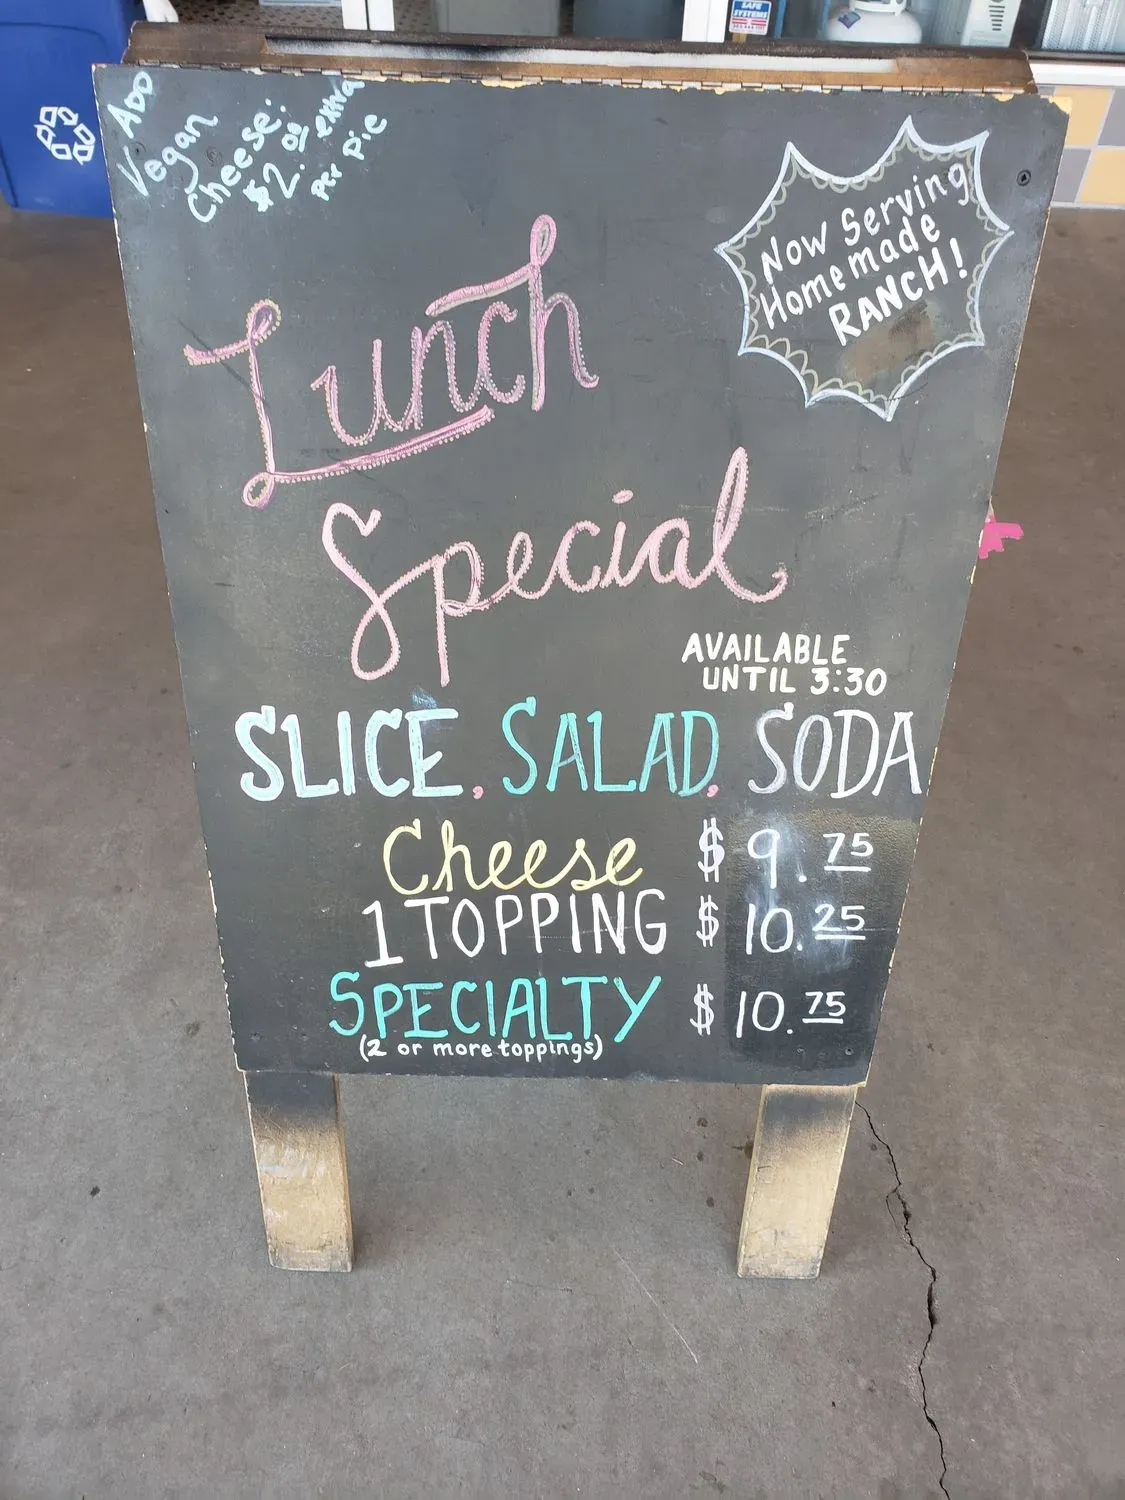 ADD
Vegan
Cheese:
$2.00 extra
per pie
Now Serving
Homemade
RANCH!
Lunch
Special
AVAILABLE
UNTIL 3:30
SLICE, SALAD, SODA
Cheese $9.75
1 TOPPING $10.25
SPECIALTY $10.75
(2 or more toppings)
SAFE
SYSTEMS